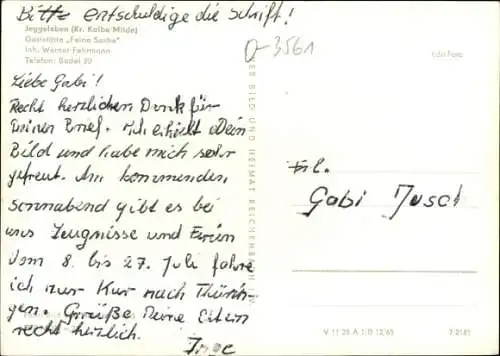 Bitte entschuldige die Schrift!
Jeggeleben (Kr. Kalbe Milde)
Gaststätte „Feine Sache"
Inh. Werner Fehlmann
Telefon: Badel 20
D-3561
Echt Foto
Liebe Gabi!
Recht herzlichen Dank für
Deinen Brief. Ich erhielt Dein
Bild und habe mich sehr
gefreut. Am kommenden
Sonnabend gibt es bei
uns Zeugnisse und Ferien
Vom 8. bis 27. Juli fahre
ich zur Kur nach Thürin-
gen. Grüße Deine Eltern
recht herzlich.
Inge
BILD UND HEIMAT REICHENBACH
Frl.
Gabi Jusch
V 11 28 A 1/0 12/65